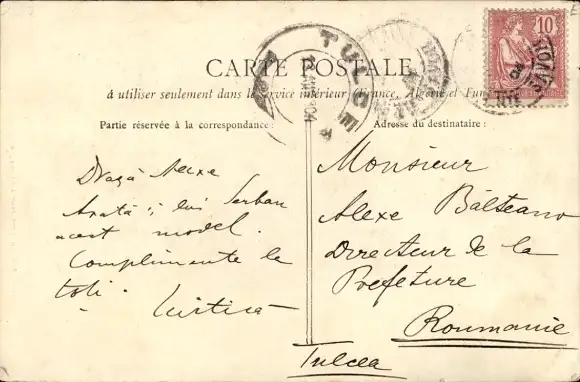 CARTE POSTALE
à utiliser seulement dans le Service intérieur (France, Algérie et Tunisie)
Partie réservée à la correspondance:
Adresse du destinataire:
10
TULCEA
Dragă Alexe
Arată-i lui Serban
acest model.
Complimente la
toți.
Monsieur
Alexe Bălteanu
Directeur de la
Prefeture
Roumanie
Tulcea